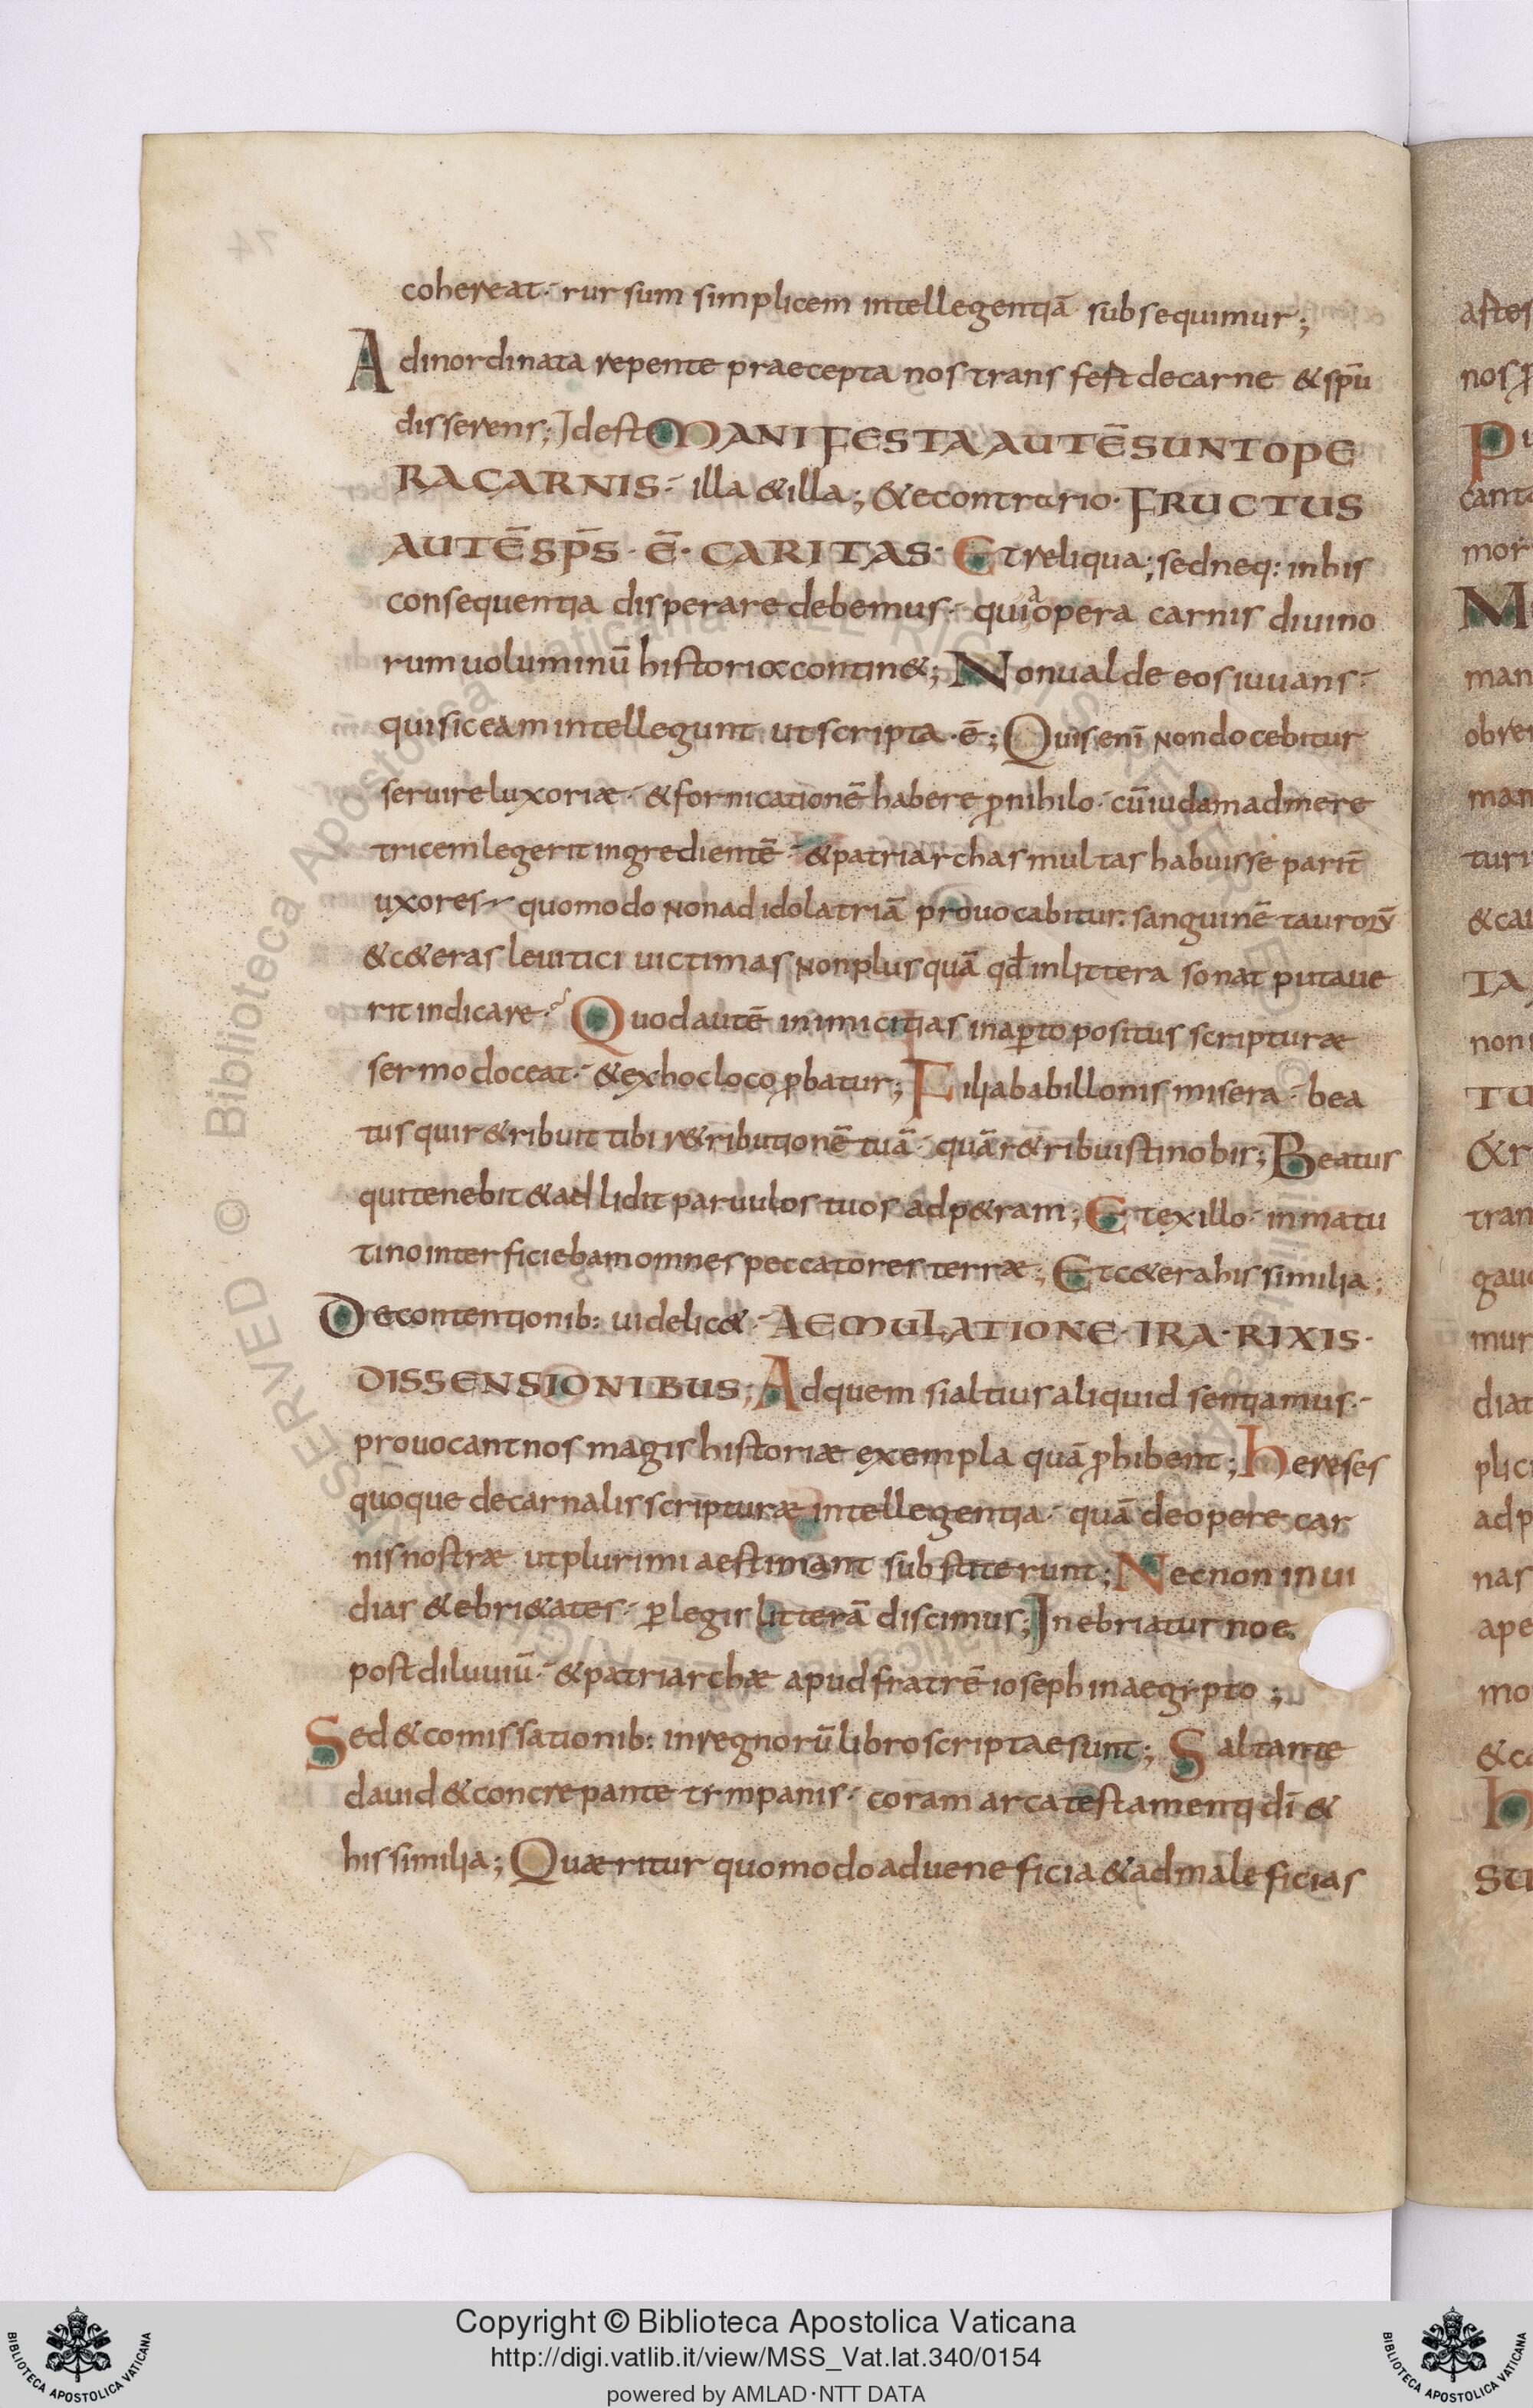 cohereat· rursum simplicem intellegentiā subsequimur;
Adinordinata repente praecepta nos trans fest decarne & sp̄u
disserens; Idest MANIFESTA AUTĒ SUNT OPE
RA CARNIS· illa & illa; & econtrario· FRUCTUS
AUTĒ SP̄S· Ē· CARITAS· Et reliqua; sed neq: in his
consequentia disperare debemus· quiᵃ opera carnis diuino
rum uoluminū historiæ contin&; Non ualde eos iuuans·
qui sic eam intellegunt ut scripta·ē; Quis enī non docebitur
seruire luxoriæ· & fornicationē habere ꝓ nihilo· cū iudam ad mere
tricem legerit ingredientē· & patriarchas multas habuisse parit̄
uxores· quomodo non ad idolatriā prouocabitur· sanguinē tauroꝝ
& c&eras leuitici uictimas non plus quā qd̄ in littera sonat putaue
rit indicare· Quod autē inimicitias in aꝑto positus scripturæ
sermo doceat· & ex hoc loco ꝓbatur; Filia babillonis misera· bea
tus qui r&ribuit tibi r&ributionē tuā· quā r&ribuisti nobis; Beatus
qui tenebit & adlidit paruulos tuos ad p&ram; Et ex illo· in matu
tino interficiebam omnes peccatores terræ; Et c&era his similia;
De contentionib: uidelic&· AEMULATIONE· IRA· RIXIS·
DISSENSIONIBUS; Ad quem si altius aliquid sentiamus·
prouocant nos magis historiæ exempla quā ꝓhibent; Hereses
quoque de carnalis scripturæ intellegentia· quā de opere car
nis nostræ ut plurimi aestimant substiterunt; Necnon inui
dias & ebri&ates· ꝑ legis litterā discimus; Inebriatur noe
post diluuiū· & patriarchæ apud fratrē ioseph in aegypto;
Sed & comissationib: in regnorū libro scriptae sunt; Saltante
dauid & concrepante tympanis· coram arca testamenti dī &
his similia; Quæritur quomodo ad ueneficia & ad maleficias
Copyright © Biblioteca Apostolica Vaticana
http://digi.vatlib.it/view/MSS_Vat.lat.340/0154
powered by AMLAD·NTT DATA
BIBLIOTECA APOSTOLICA VATICANA
BIBLIOTECA APOSTOLICA VATICANA